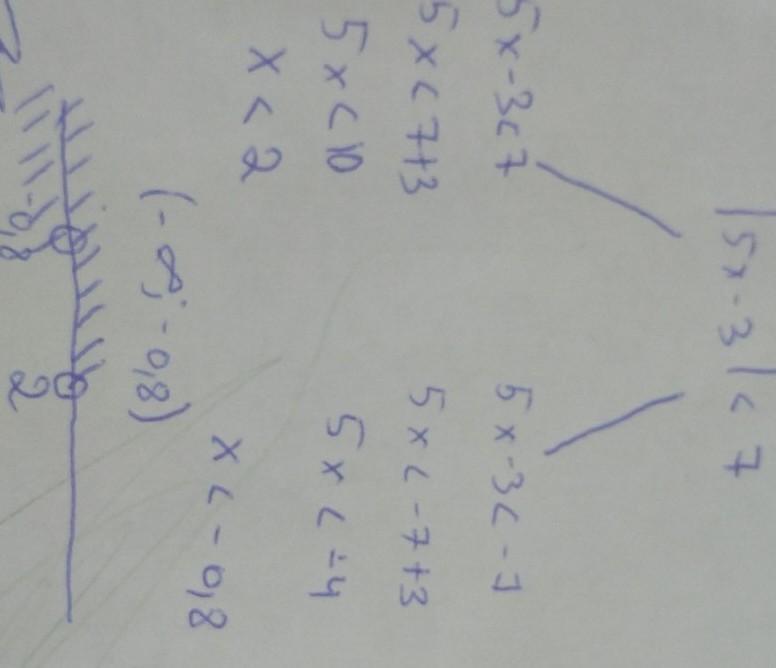 |5x-3|<7
5x-3<7
5x<7+3
5x<10
x<2
5x-3<-7
5x<-7+3
5x<-4
x<-0,8
(-∞; -0,8)
-0,8 2